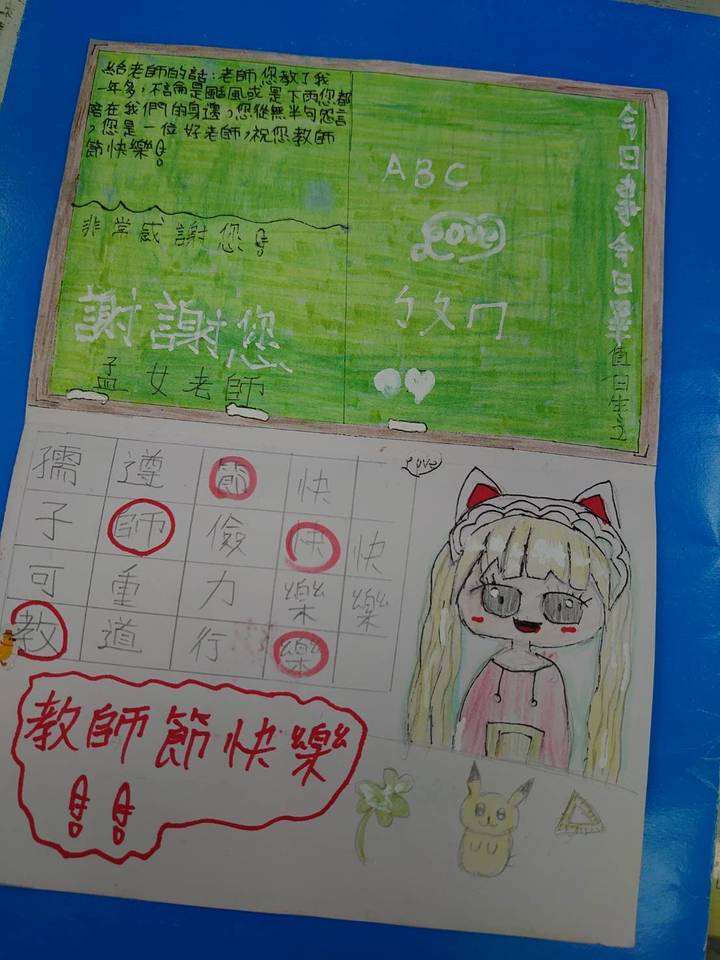 給老師的話:老師您教了我
一年多,不論是颱風或是下雨您都
陪在我們的身邊,您從無半句怨言
,您是一位好老師,祝您教師
節快樂!
非常感謝您!
謝謝您
孟女老師
ABC
Love
ㄅㄆㄇ
今日事今日畢
值日生:
Love
孺 遵 節 快
子 師 儉 快 快
可 重 力 樂 樂
教 道 行 樂
教師節快樂
!!